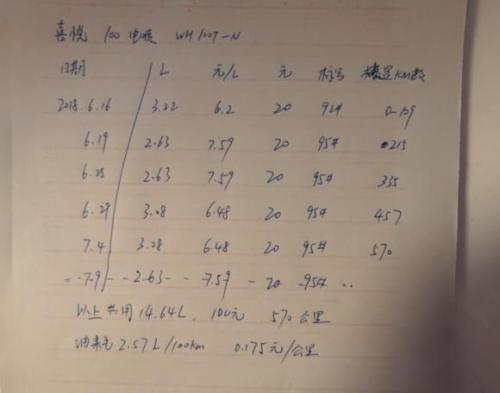 喜悦 100 电喷 WH100T-N
日期 L 元/L 元 标号 KM数
2018.6.16 3.22 6.2 20 92# 0-109
6.19 2.63 7.59 20 95# 215
6.25 2.63 7.59 20 95# 335
6.29 3.08 6.48 20 95# 457
7.4 3.08 6.48 20 95# 570
7.9 2.63 7.59 20 95#
以上共用14.64L, 100元 570公里
油耗 2.57L/100km 0.175元/公里